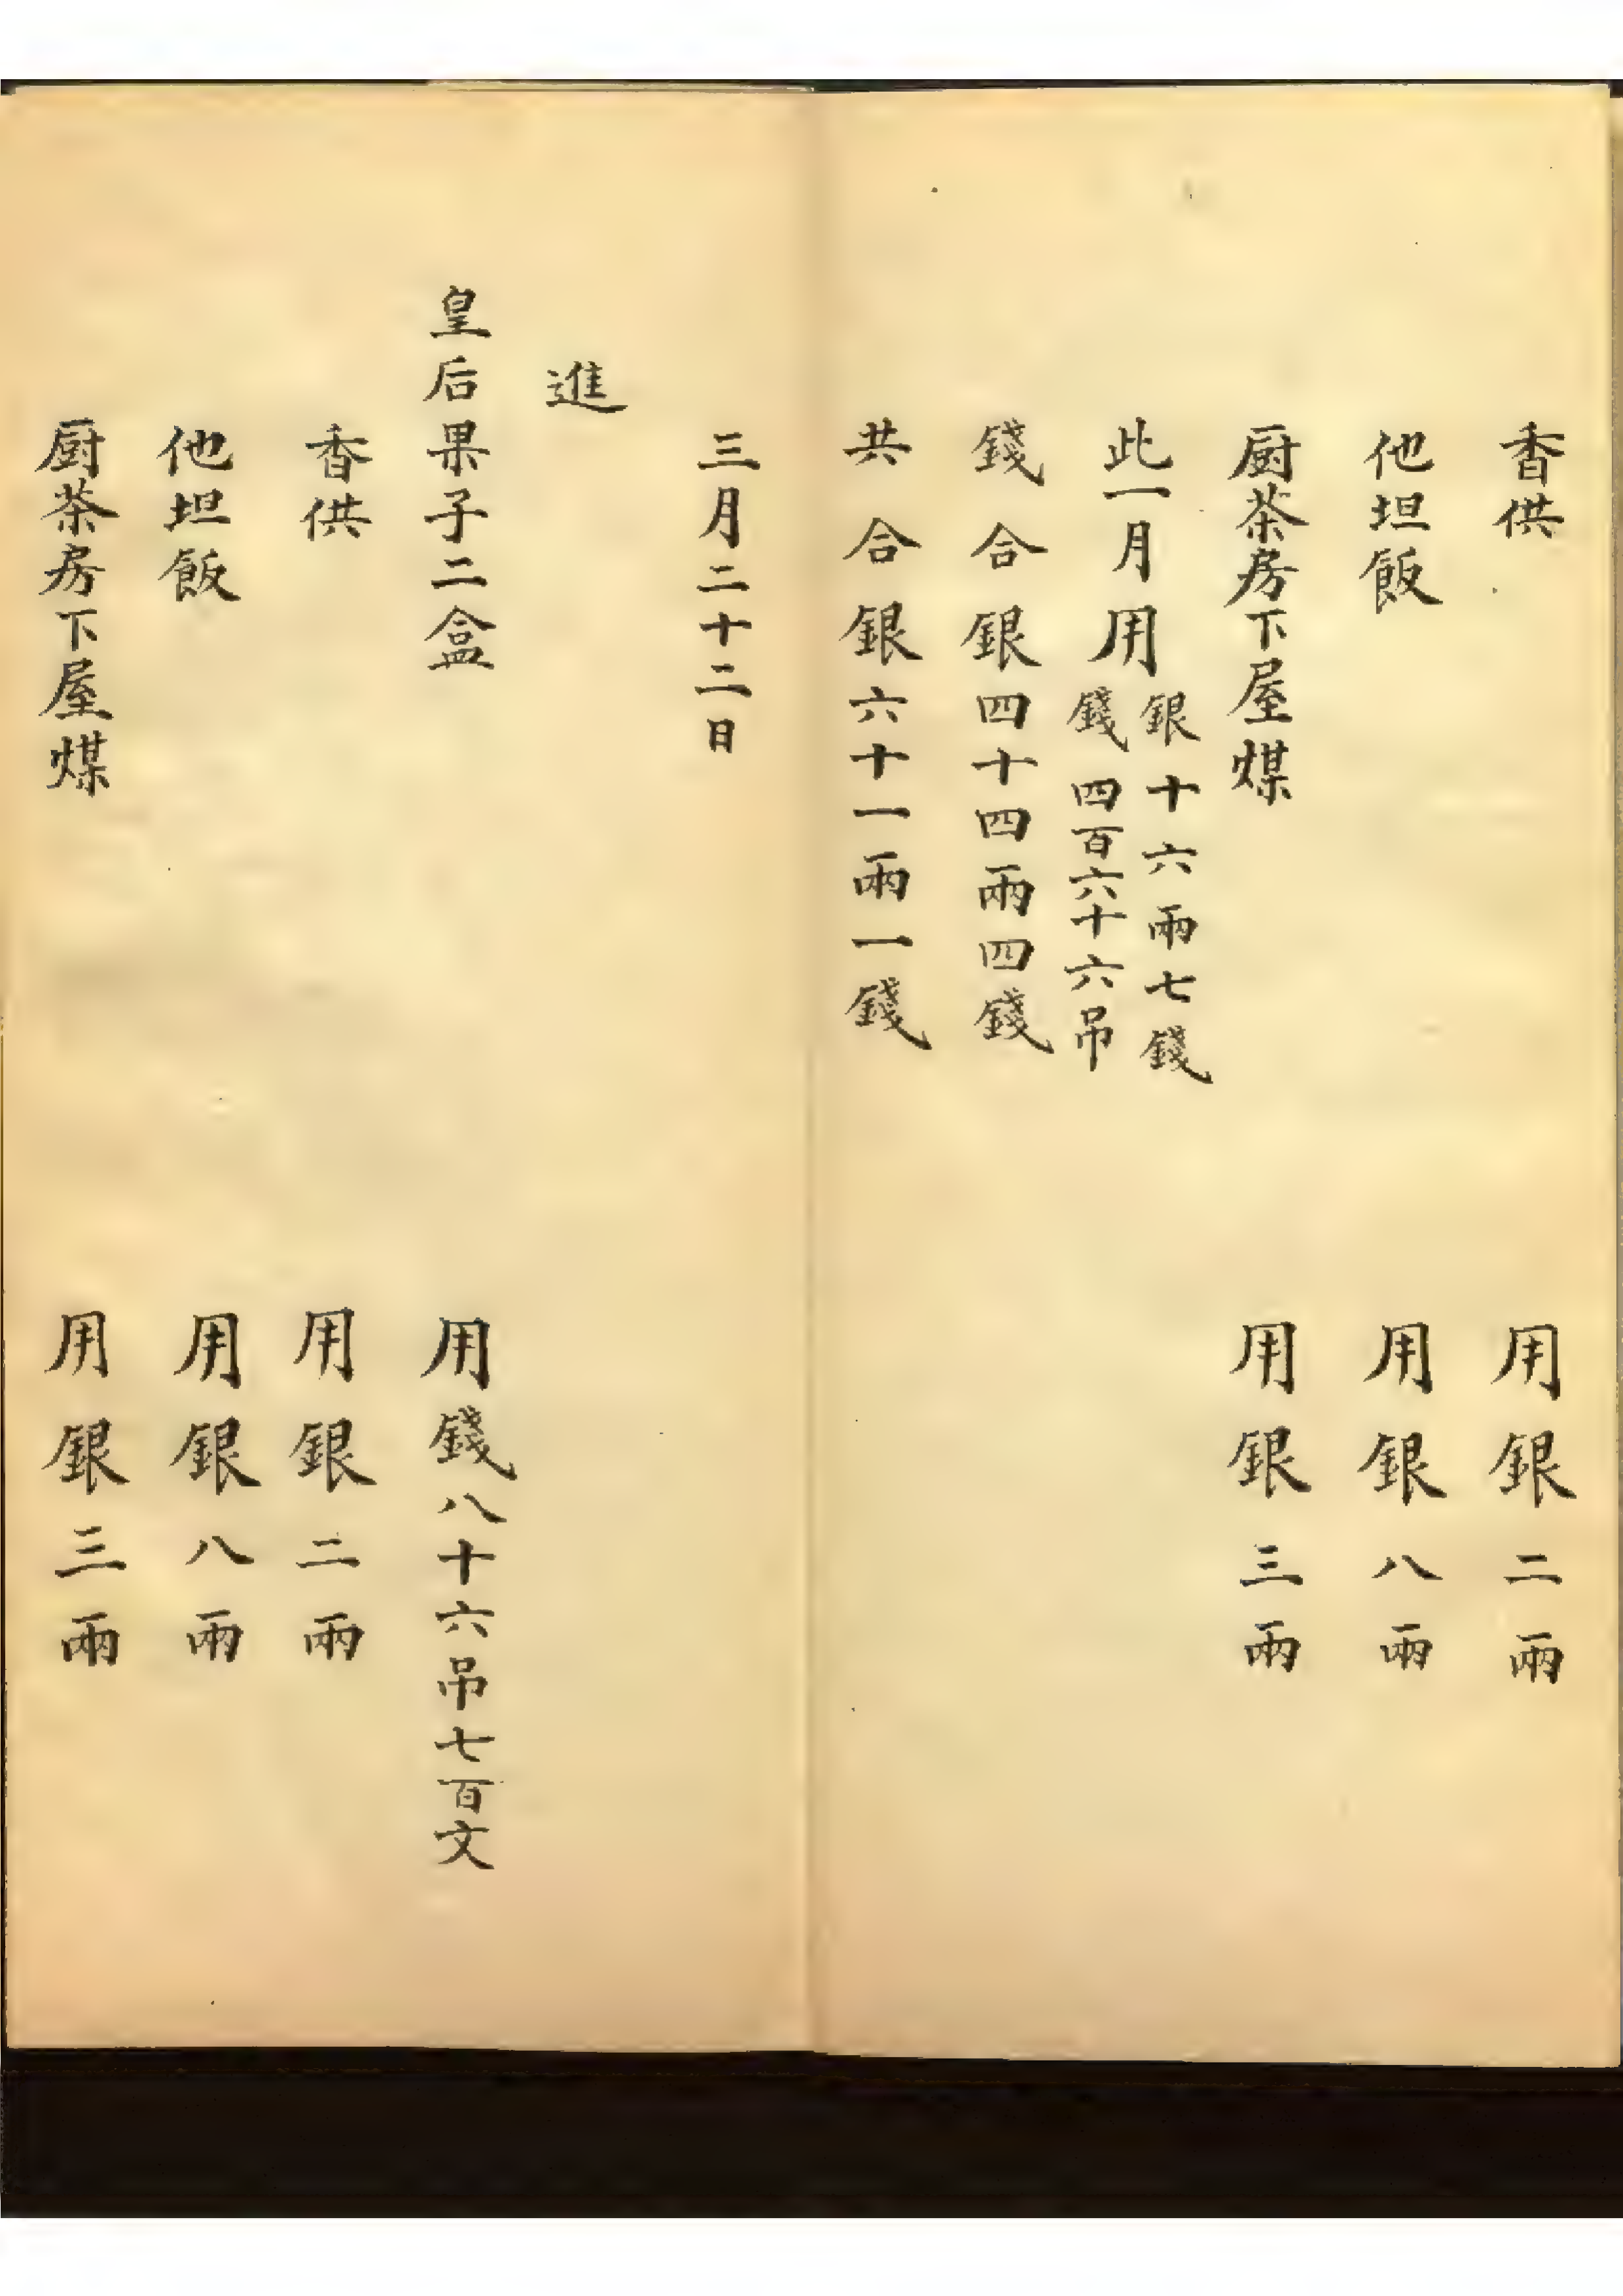 香供 用銀二兩
他坦飯 用銀八兩
厨茶房下屋煤 用銀三兩
此一月用銀十六兩七錢
錢四百六十六吊
錢合銀四十四兩四錢
共合銀六十一兩一錢
三月二十二日
進
皇后果子二盒 用錢八十六吊七百文
香供 用銀二兩
他坦飯 用銀八兩
厨茶房下屋煤 用銀三兩